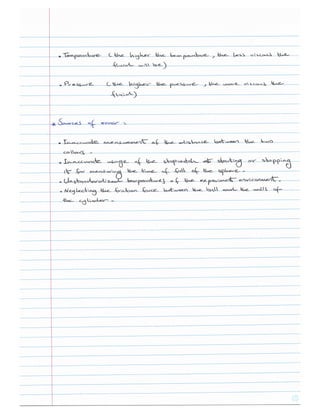 • Temperature ( the higher the temperature , the less viscous the
fluid will be )
• Pressure ( the higher the pressure , the more viscous the
fluid )
• Sources of error :
• Inaccurate measurement of the distance between the two
collars .
• Inaccurate usage of the stopwatch at starting or stopping
it for measuring the time of fall of the sphere .
temperature of the experiment environment .
• Neglecting the friction force between the ball and the walls of
the cylinder .